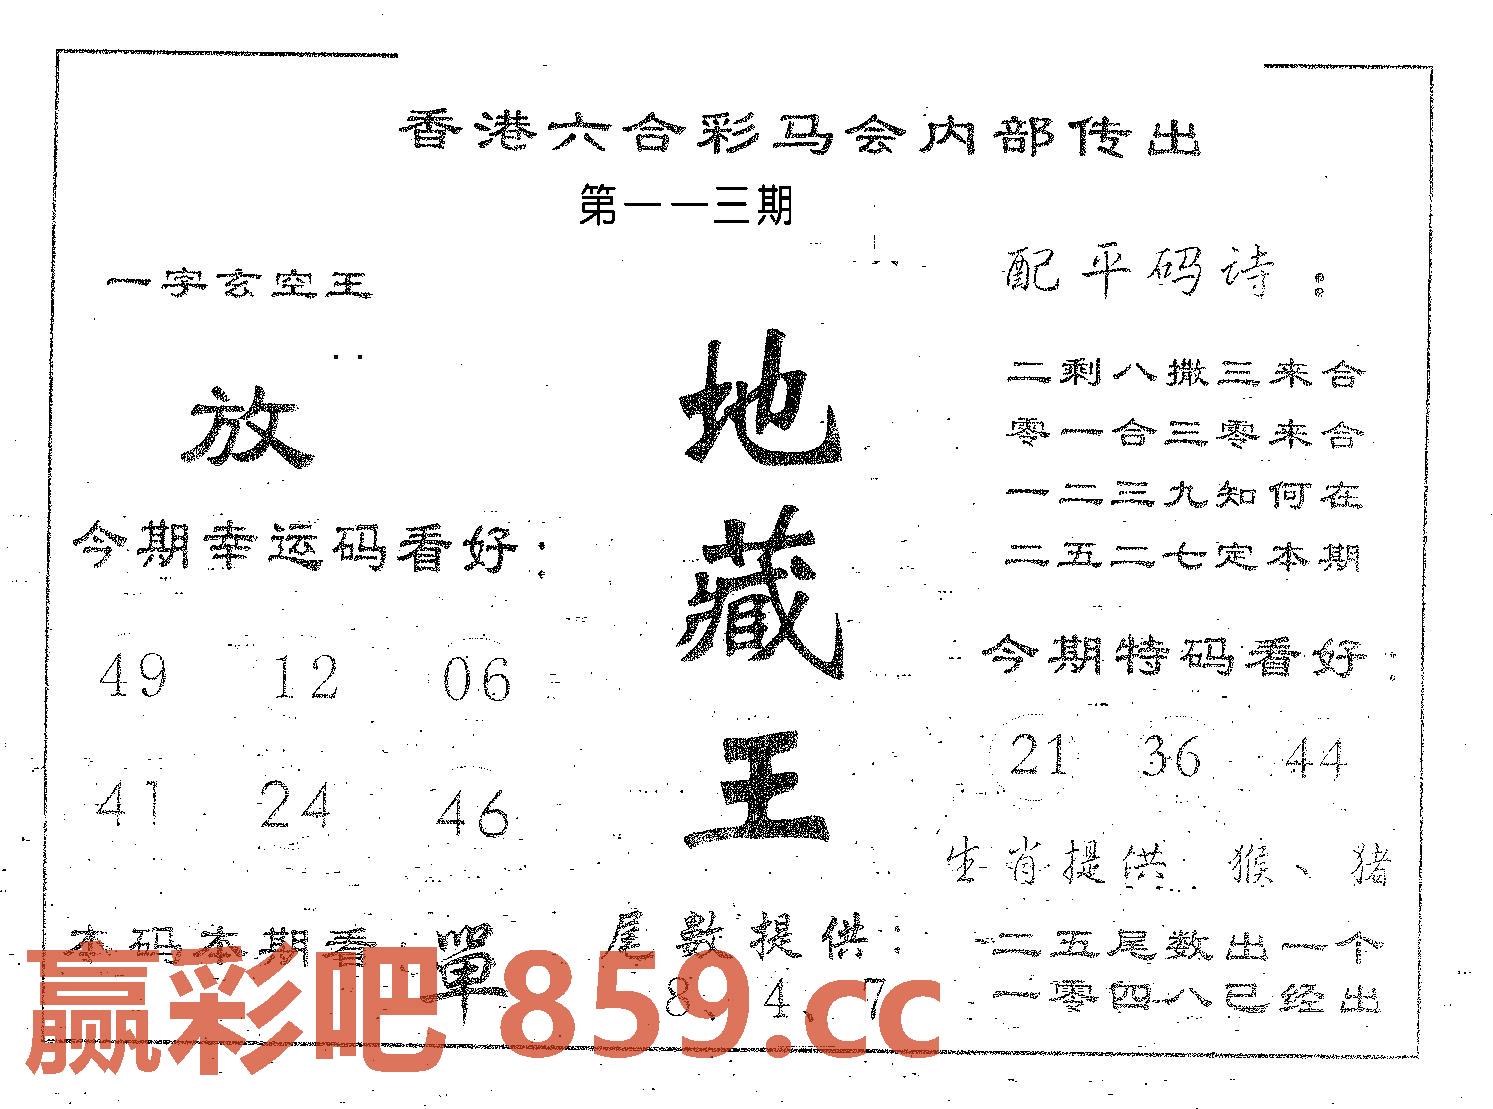 香港六合彩马会内部传出
第一一三期
一字玄空王
放
今期幸运码看好：
49 12 06
41 24 46
本码本期看：單
地
藏
王
尾數提供：
8、4、7
配平码诗：
二剩八撒三来合
零一合三零来合
一二三九知何在
二五二七定本期
今期特码看好：
21 36 44
生肖提供 猴、猪
二五尾数出一个
一零四八已经出
赢彩吧 859.cc